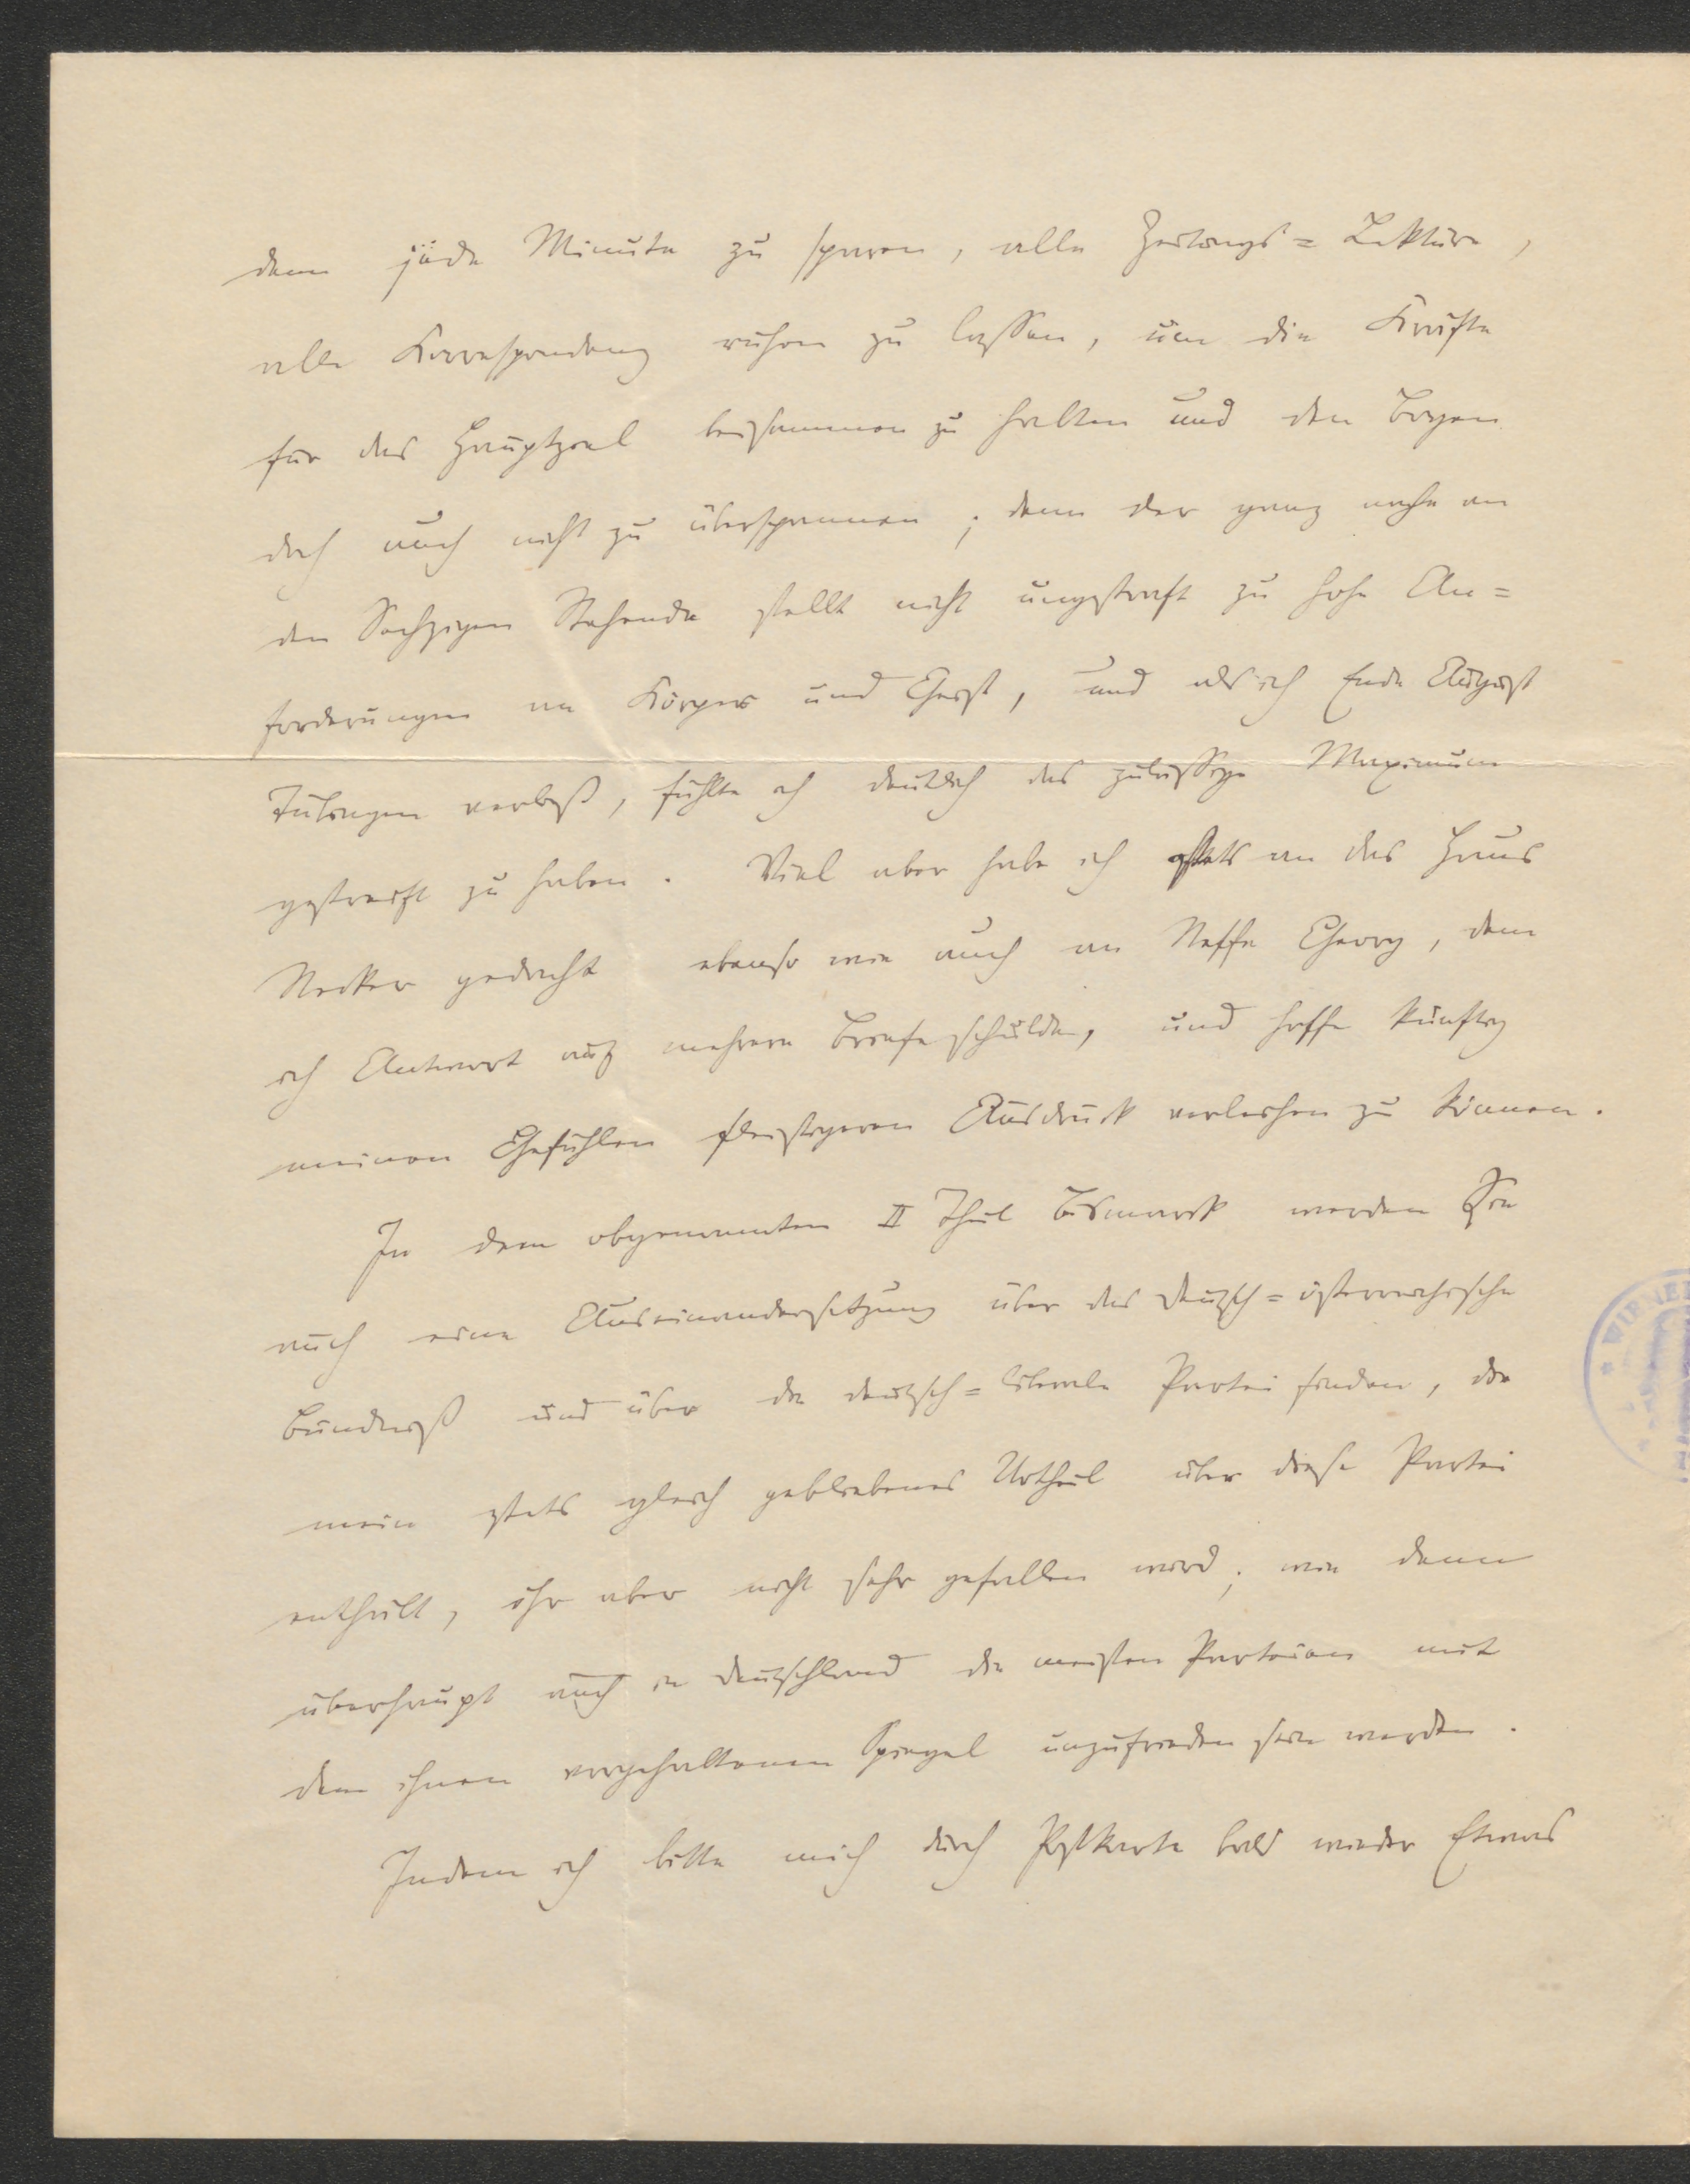 denn jede Minute zu sparen, alle Zeitungs=Lektüre,
alle Korrespondenz ruhen zu lassen, um die Kräfte
für das Hauptziel beisammen zu halten und den Bogen
doch auch nicht zu überspannen; denn der ganz nahe an
den Sechzigen Stehende stellt nicht ungestraft zu hohe An=
forderungen an Körper und Geist, und als ich Ende August
Tübingen verließ, fühlte ich deutlich das zulässige Maximum
gestreift zu haben. Viel aber habe ich stets an das Haus
Necker gedacht ebenso wie auch an Neffe Georg, dem
ich Antwort auf mehrere Briefe schulde, und hoffe künftig
meinen Gefühlen fleißigeren Ausdruck verleihen zu können.
In dem obgenannten II Theil Bismarck werden Sie
auch eine Auseinandersetzung über das deutsch=österreichische
Bündniß und über die deutsch=liberale Partei finden, die
mein stets gleich gebliebenes Urtheil über diese Partei
enthält, ihr aber nicht sehr gefallen wird; wie denn
überhaupt auch in Deutschland die meisten Parteien mit
dem ihnen vorgehaltenen Spiegel unzufrieden sein werden.
Indem ich bitte mich durch Postkarte bald wieder Etwas